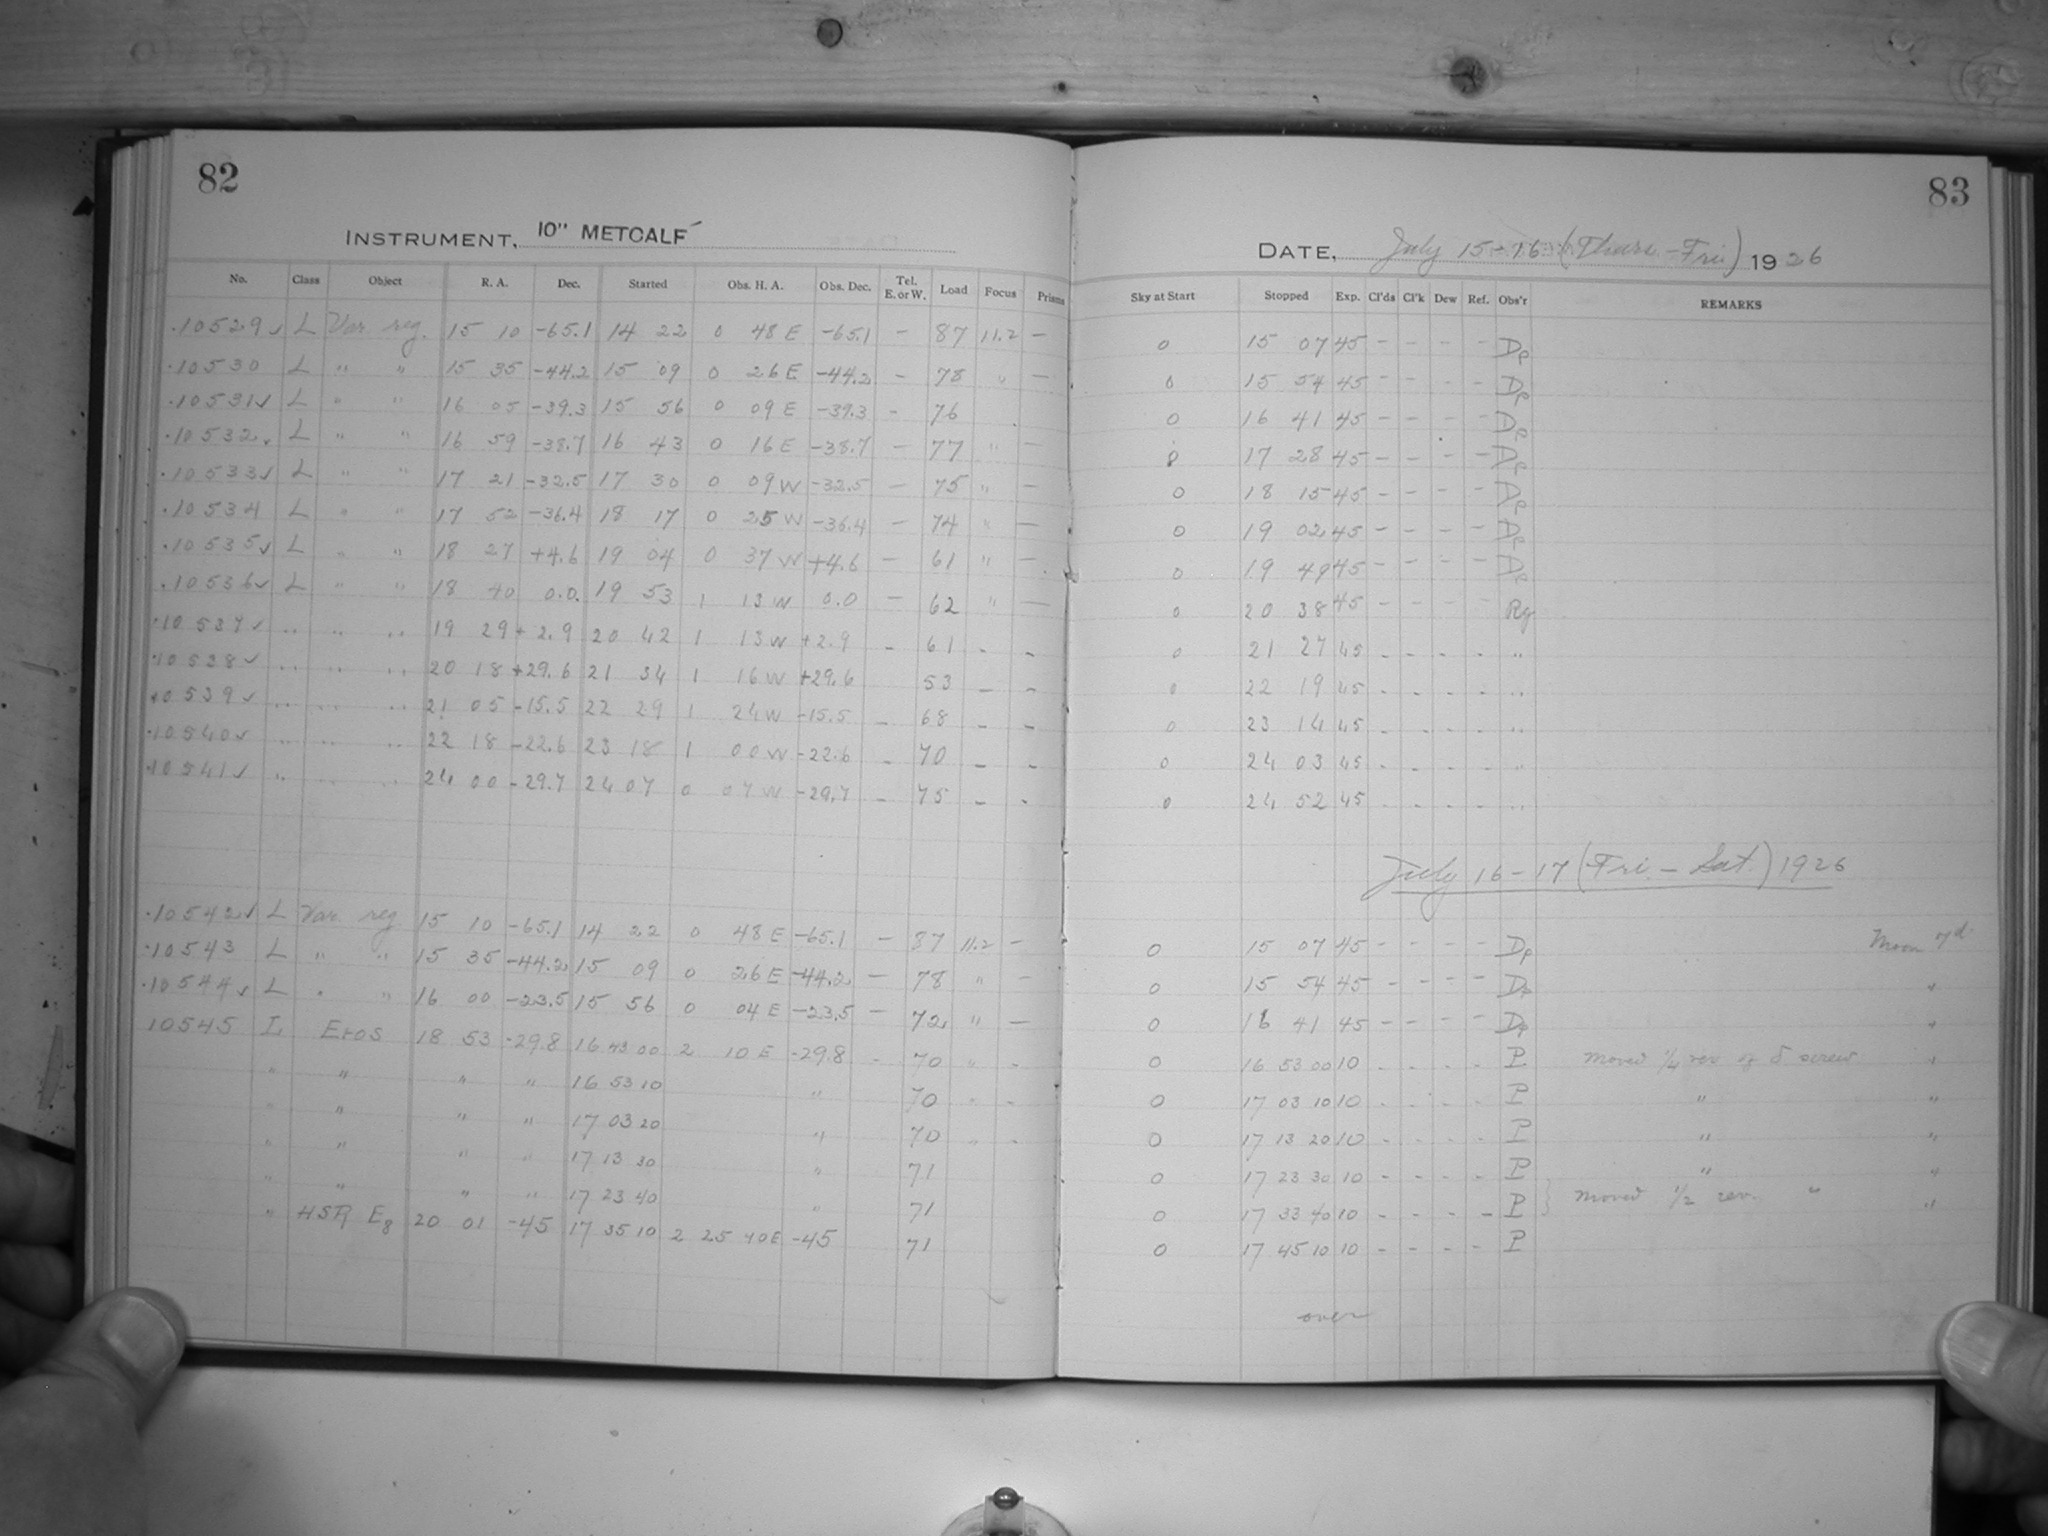 82
INSTRUMENT, 10" METCALF
No. Class Object R. A. Dec. Started Obs. H. A. Obs. Dec. Tel. E. or W. Load Focus Prisms
10529 ✓ L Var. reg. 15 10 -65.1 14 22 0 48 E -65.1 - 87 11.2 -
10530 L " " 15 35 -44.2 15 09 0 26 E -44.2 - 78 " -
10531 ✓ L " " 16 05 -39.3 15 56 0 09 E -39.3 - 76
10532 L " " 16 59 -38.7 16 43 0 16 E -38.7 - 77 " -
10533 ✓ L " " 17 21 -32.5 17 30 0 09 W -32.5 - 75 " -
10534 L " " 17 52 -36.4 18 17 0 25 W -36.4 - 74 " -
10535 ✓ L " " 18 27 +4.6 19 04 0 37 W +4.6 - 61 " -
10536 ✓ L " " 18 40 0.0 19 53 1 13 W 0.0 - 62 " -
10537 ✓ " " " 19 29 +2.9 20 42 1 13 W +2.9 - 61 - -
10538 ✓ " " " 20 18 +29.6 21 34 1 16 W +29.6 53 - -
10539 ✓ " " " 21 05 -15.5 22 29 1 24 W -15.5 - 68 - -
10540 ✓ " " " 22 18 -22.6 23 18 1 00 W -22.6 - 70 - -
10541 ✓ " " " 24 00 -29.7 24 07 0 07 W -29.7 - 75 - -
10542 ✓ L Var. reg 15 10 -65.1 14 22 0 48 E -65.1 - 87 11.2 -
10543 L " " 15 35 -44.2 15 09 0 26 E -44.2 - 78 " -
10544 ✓ L " " 16 00 -23.5 15 56 0 04 E -23.5 - 72 " -
10545 L Eros 18 53 -29.8 16 43 00 2 10 E -29.8 - 70 " -
" " " " 16 53 10 " 70 - -
" " " " 17 03 20 " 70 " -
" " " " 17 13 30 " 71
" " " " 17 23 40 " 71
" HSR E8 20 01 -45 17 35 10 2 25 40 E -45 71
83
DATE, July 15-16 (Thurs-Fri) 1926
Sky at Start Stopped Exp. Cl'ds Cl'k Dew Ref. Obs'r REMARKS
0 15 07 45 - - - - Dp
0 15 54 45 - - - - Dp
0 16 41 45 - - - - Dp
0 17 28 45 - - - - Dp
0 18 15 45 - - - - Dp
0 19 02 45 - - - - Dp
0 19 49 45 - - - - Dp
0 20 38 45 - - - - Rg
0 21 27 45 - - - - "
0 22 19 45 - - - - "
0 23 14 45 - - - - "
0 24 03 45 - - - - "
0 24 52 45 - - - - "
July 16-17 (Fri-Sat.) 1926
0 15 07 45 - - - - Dp Moon 7d
0 15 54 45 - - - - Dp "
0 16 41 45 - - - - Dp "
0 16 53 00 10 - - - - P moved 1/4 rev of δ screw "
0 17 03 10 10 - - - - P " "
0 17 13 20 10 - - - - P " "
0 17 23 30 10 - - - - P " "
0 17 33 40 10 - - - - P } moved 1/2 rev. " "
0 17 45 10 10 - - - - P
over